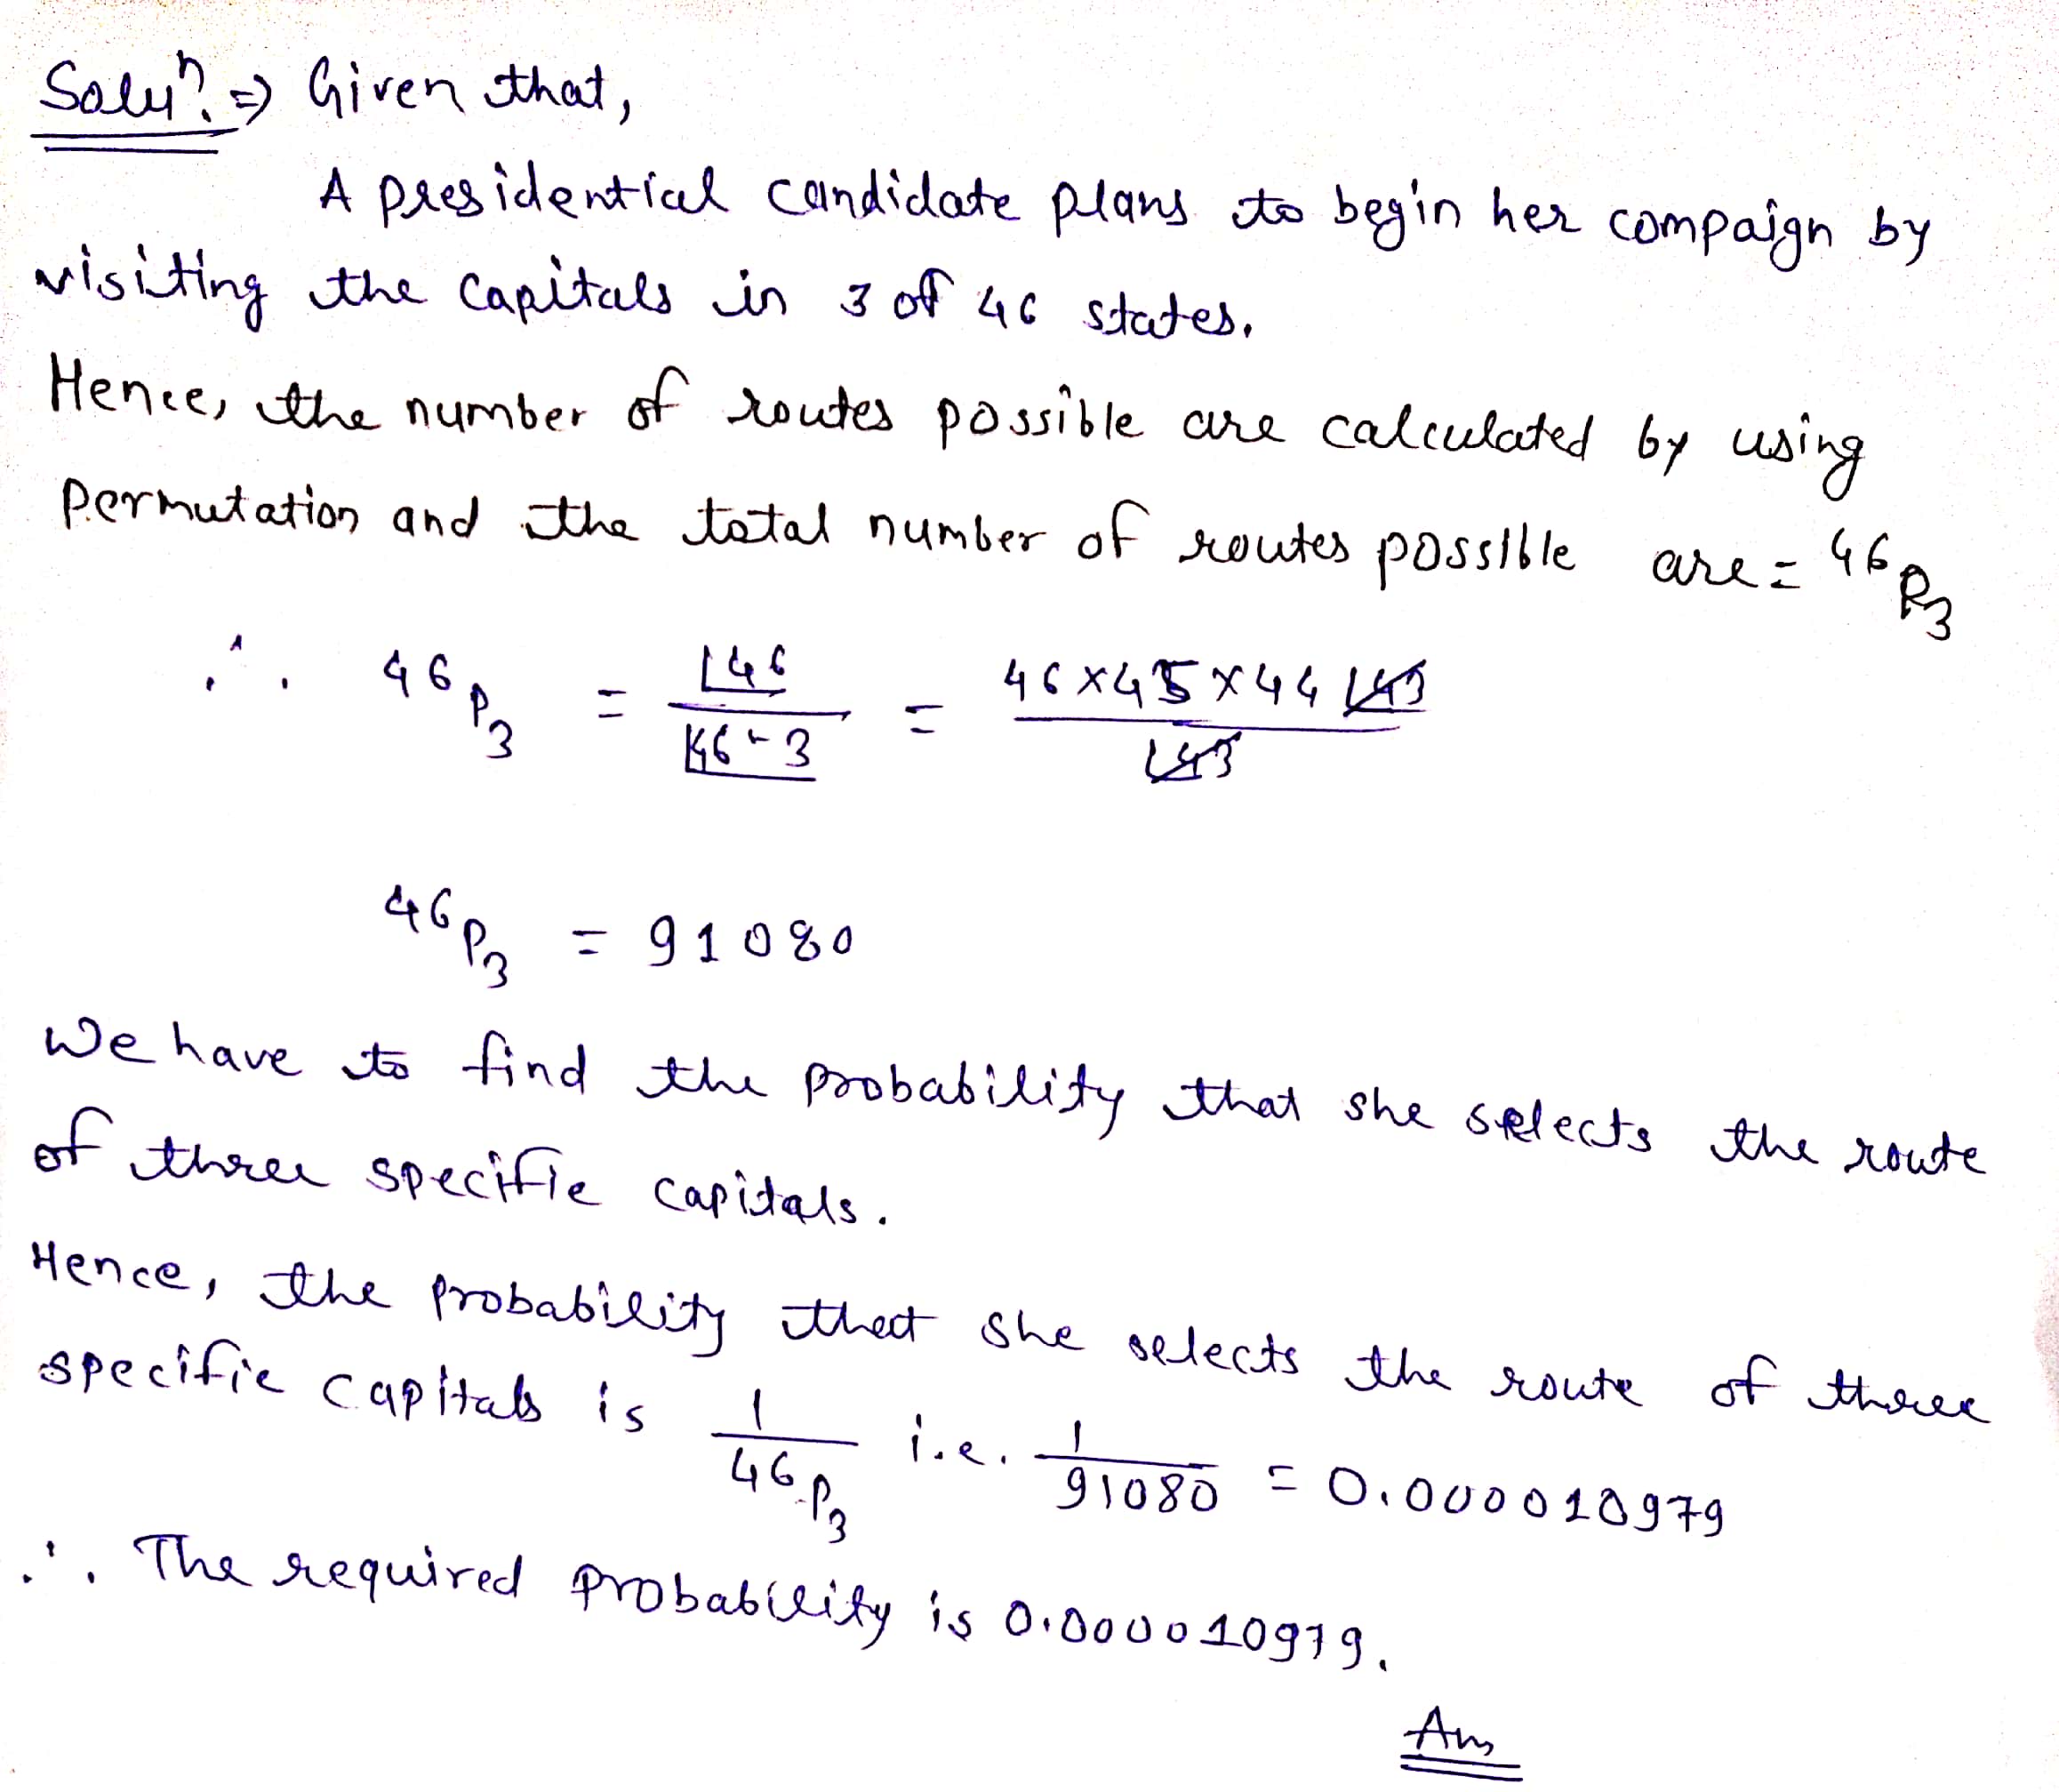 Solun. ⇒ Given that,
A presidential candidate plans to begin her compaign by
visiting the capitals in 3 of 46 states.
Hence, the number of routes possible are calculated by using
permutation and the total number of routes possible are = ⁴⁶P₃
∴ ⁴⁶P₃ = |46 / |46-3 = 46×45×44 |43 / |43
⁴⁶P₃ = 91080
We have to find the probability that she selects the route
of three specific capitals.
Hence, the probability that she selects the route of three
specific capitals is 1/⁴⁶P₃ i.e. 1/91080 = 0.000010979
∴ The required probability is 0.000010979.
Ans